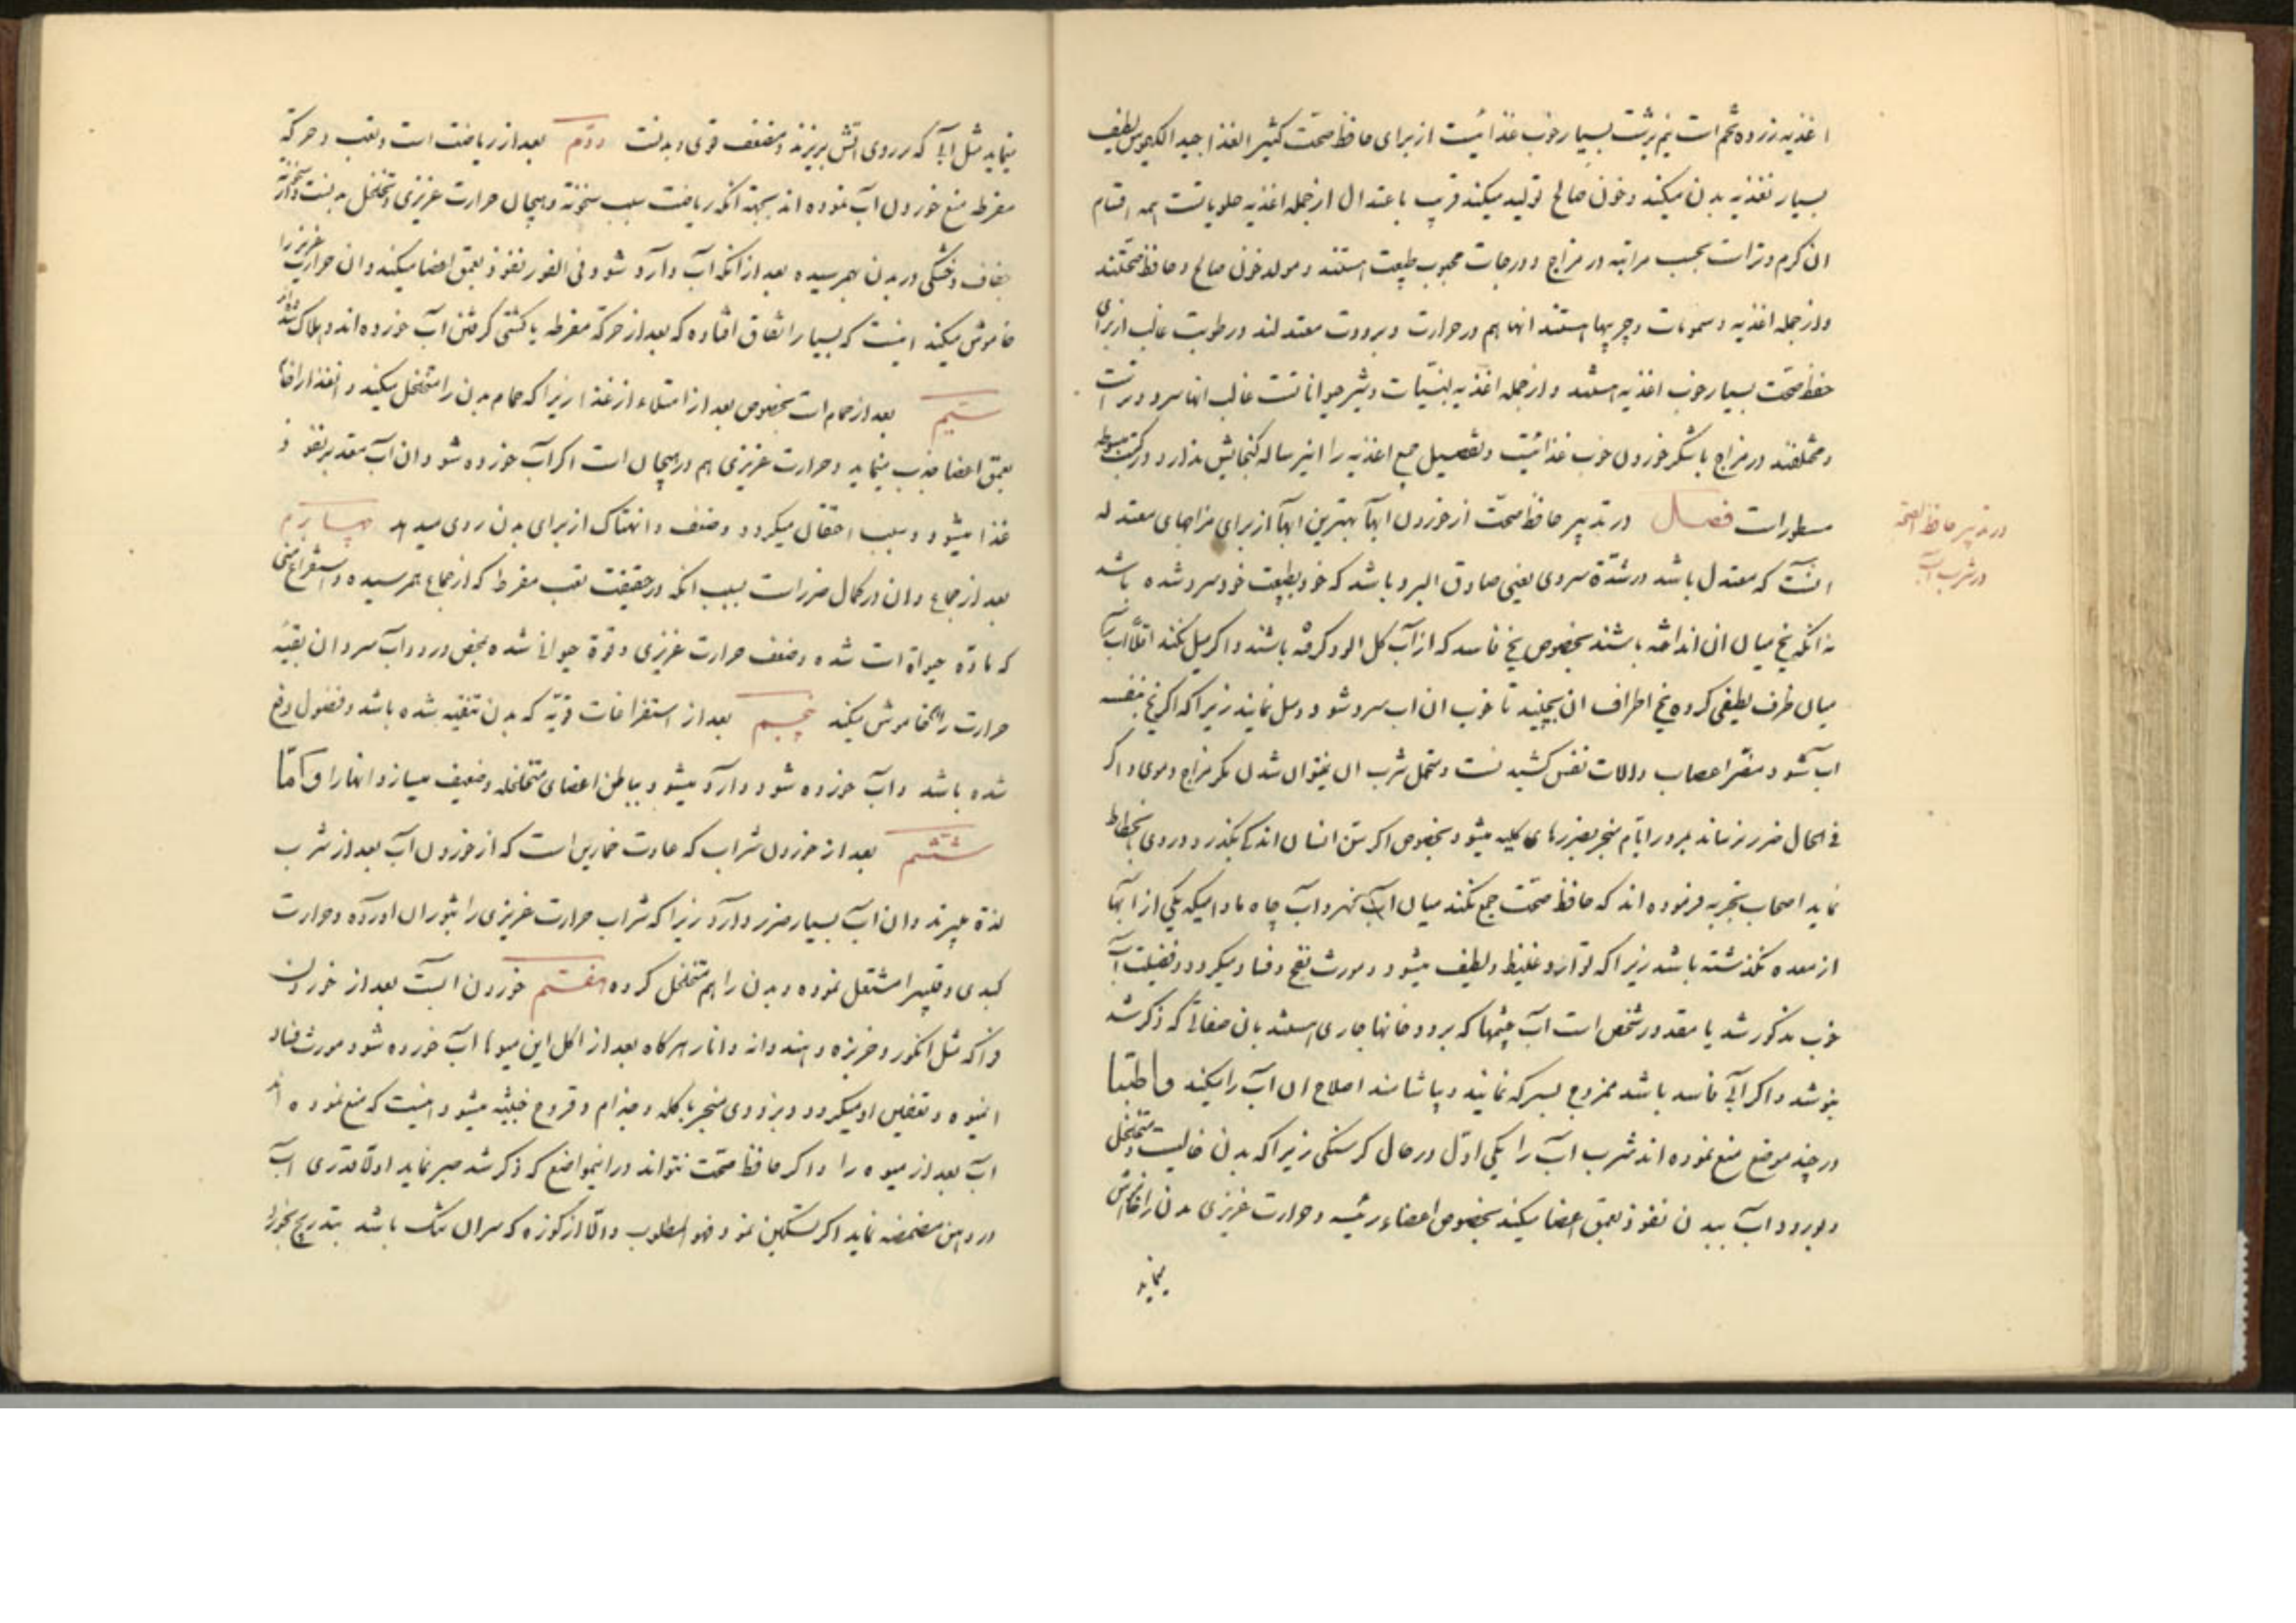 اغذیه زرده تخم است نیم برشت بسیار خوب غذائیست از برای حافظ صحّت کثیر الغذا جید الکیموس لطیف
بسیار تغذیه بدن میکند و خون صالح تولید میکند قریب باعتدال از جمله اغذیه حلویاتست همه اقسام
ان کرم و تر است بحسب مراتبه در مزاج و درجات محبوب طبیعت هستند و مولد خون صالح و حافظ صحّتند
و از جمله اغذیه دسمومات و چربیها هستند انها هم در حرارت و برودت معتدلند و رطوبت غالب از برای
حفظ صحّت بسیار خوب اغذیه هستند و از جمله اغذیه لبنیّات و شیر حیواناتست غالب انها سرد و تر است
و مختلفند در مزاج با شکر خوردن خوب غذائیست و تفصیل جمیع اغذیه را اینرساله کنجایش ندارد و در کتب مبسوطه
مسطور است فصل در تدبیر حافظ صحّت از خوردن ابها بهترین ابها از برای مزاجهای معتدله
انست که معتدل باشد در شدّة سردی یعنی صادق البرد باشد که خود بطبیعت خود سرد شده باشد
نه انکه یخ میان ان انداخته باشند بخصوص یخ فاسد که از آب کل الود کرفته باشند و اکر میل کنند اقلاً اب را
میان ظرف لطیفی کرده یخ اطراف ان بچینند تا خوب ان اب سرد شود و میل نمایند زیرا که اکر یخ بنفسه
اب شود مضّر اعصاب و الات نفس کشیدنست و متحمل شرب ان نمیتوان شدن مکر مزاج دموی و اکر
فی الحال ضرر نرساند بمرور ایّام منجر بضررهای کلیه میشود بخصوص اکر سن انسان اندکی بکذرد و روی بانحطاط
نماید اصحاب تجربه فرموده اند که حافظ صحّت جمع نکند میان آب نهر و اب چاه مادامیکه یکی از ابها
از معده نکذشته باشد زیرا که توارد غلیظ و لطیف میشود و مورث نفخ و فساد میکردد و فضیلت آب
خوب مذکور شد یا مقدور شخص است آب چشمها که برودخانها جاری هستند بان صفاتی که ذکر شد
بنوشد و اکر ابی فاسد باشد ممزوج بسرکه نمایند و بیاشامند اصلاح ان آب را میکند و اطّبا
در چند موضع منع نموده اند شرب اب را یکی اوّل در حال کرسنکی زیرا که بدن خالیست و متخلخل
و بورود اب ببدن نفوذ بعمق اعضا میکند بخصوص اعضاء رئیسه و حرارت غریزی بدن را خاموش
مینماید
در تدبیر حافظ الصحّه
در شرب آب
مینماید مثل ابی که بر روی اتش بریزند و مضعف قوی و بدنست دوّم بعد از ریاضت است و تعب و حرکة
مفرطه منع خوردن آب نموده اند بجهة انکه ریاضت سبب سخونة و هیجان حرارت غریزی و تخلخل بدنست و
جفاف و خشکی در بدن بهمرسیده بعد از انکه آب وارد شود فی الفور نفوذ بعمق اعضا میکند و ان حرارت غریزیرا
خاموش میکند اینست که بسیار اتفاق افتاده که بعد از حرکة مفرطه یا کشتی کرفتن آب خورده اند و هلاک شده اند
سیّم بعد از حمام است بخصوص بعد از امتلاء از غذا زیرا که حمام بدن را متخلخل میکند و انغذا را
بعمق اعضا جذب مینماید و حرارت غریزی هم در هیجان است اکر آب خورده شود ان آب مقدّر نفوذ
غذا میشود و سبب احتقان میکردد و ضعف و انهتاک از برای بدن روی میدهد چهارم
بعد از جماع و ان در کمال ضرر است بسبب انکه در حقیقت تعب مفرط که از جماع بهمرسیده و استفراغ منی
که مادّه حیوة است شده و ضعف حرارت غریزی و قوّة حیوانی شده بمحض ورود اب سرد ان بقیّه
حرارت را خاموش میکند پنجم بعد از استفراغات قویّه که بدن تنقیه شده باشد و فضول رفع
شده باشد و اب خورده شود وارد میشود بباطن اعضای متخلخله و ضعیف میسازد انها را و امّا
ششم بعد از خوردن شراب که عادت خمارین است که از خوردن آب بعد از شراب
لذة میبرند و ان آب بسیار ضرر دارد زیرا که شراب حرارت غریزی را بثوران اورده و حرارت
کبدی و قلبیرا مشتعل نموده و بدن را هم متخلخل کرده هفتم خوردن ابست بعد از خوردن
فواکه مثل انکور و خربزه و هندوانه و انار هرکاه بعد از اکل این میوها اب خورده شود مورث فساد
انمیوه و تعفین او میکردد و بزودی منجر باکله و جذام و قروح خبیثه میشود اینست که منع نموده اند
آب بعد از میوه را و اکر حافظ صحّت نتواند در اینمواضع که ذکر شد صبر نماید اولاً قدری اب
در دهن مضمضه نماید اکر تسکین نمود فهو المطلوب و الّا از کوزه که سر ان تنک باشد بتدریج بخورد